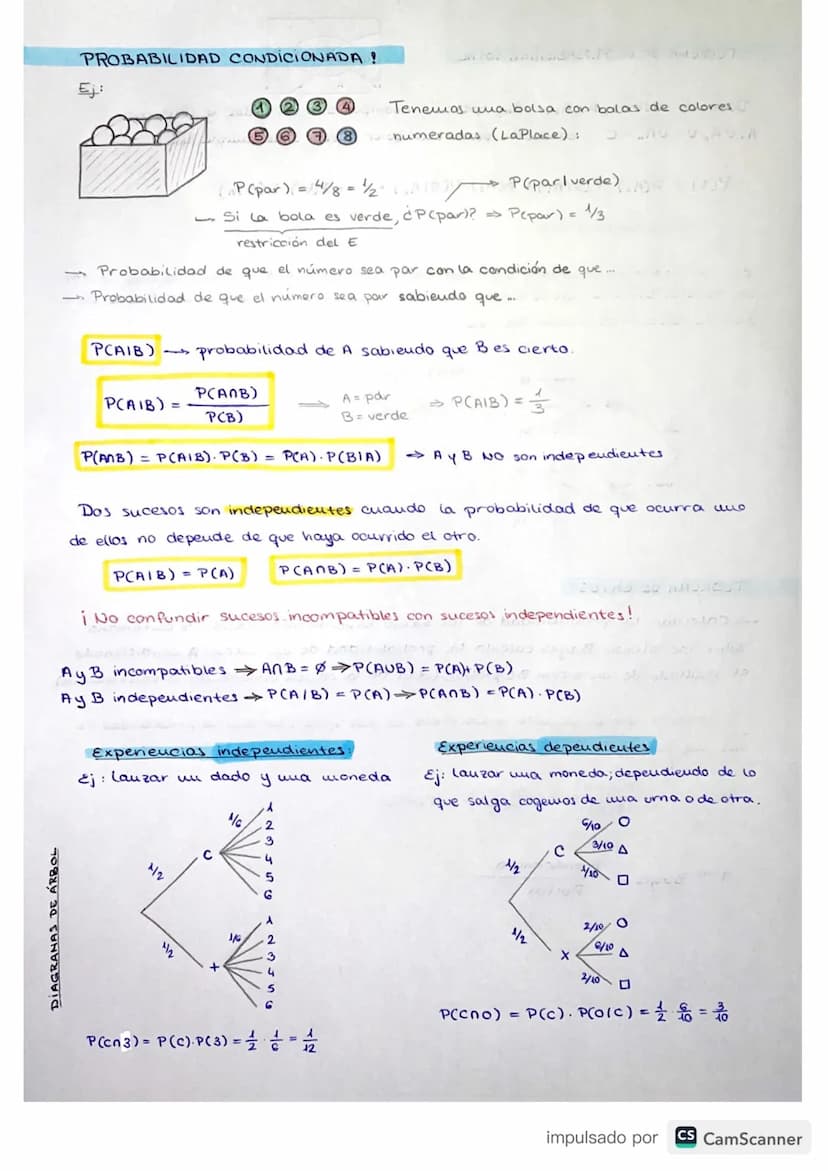 PROBABILIDAD CONDICIONADA!
Ej:
1 2 3 4
5 6 7 8
Tenemos una bolsa con bolas de colores
numeradas (LaPlace):
P(par) = 4/8 = 1/2
P(par/verde)
Si la bola es verde, ¿P(par)? ⇒ P(par) = 1/3
restricción del E
→ Probabilidad de que el número sea par con la condición de que...
→ Probabilidad de que el número sea par sabiendo que ...
P(A|B) → probabilidad de A sabiendo que B es cierto.
P(A|B) = P(A∩B) / P(B) ⟹ A = par B = verde ⇒ P(A|B) = 1/3
P(A∩B) = P(A|B)·P(B) = P(A)·P(B|A) ⇒ A y B NO son independientes
Dos sucesos son independientes cuando la probabilidad de que ocurra uno
de ellos no depende de que haya ocurrido el otro.
P(A|B) = P(A) P(A∩B) = P(A)·P(B)
¡No confundir sucesos incompatibles con sucesos independientes!
A y B incompatibles ⇒ A∩B = ∅ ⇒ P(A∪B) = P(A)+P(B)
A y B independientes → P(A/B) = P(A) → P(A∩B) = P(A)·P(B)
Experiencias independientes:
Ej: Lanzar un dado y una moneda
DIAGRAMAS DE ÁRBOL
1/2
C
1/6
1
2
3
4
5
6
1/2
+
1/6
1
2
3
4
5
6
P(C∩3) = P(C)·P(3) = 1/2 · 1/6 = 1/12
Experiencias dependientes
Ej: lanzar una moneda; dependiendo de lo
que salga cogemos de una urna o de otra.
1/2
C
6/10 O
3/10 △
1/10 □
1/2
X
2/10 O
6/10 △
2/10 □
P(C∩O) = P(C) · P(O/C) = 1/2 · 6/10 = 3/10
impulsado por CS CamScanner